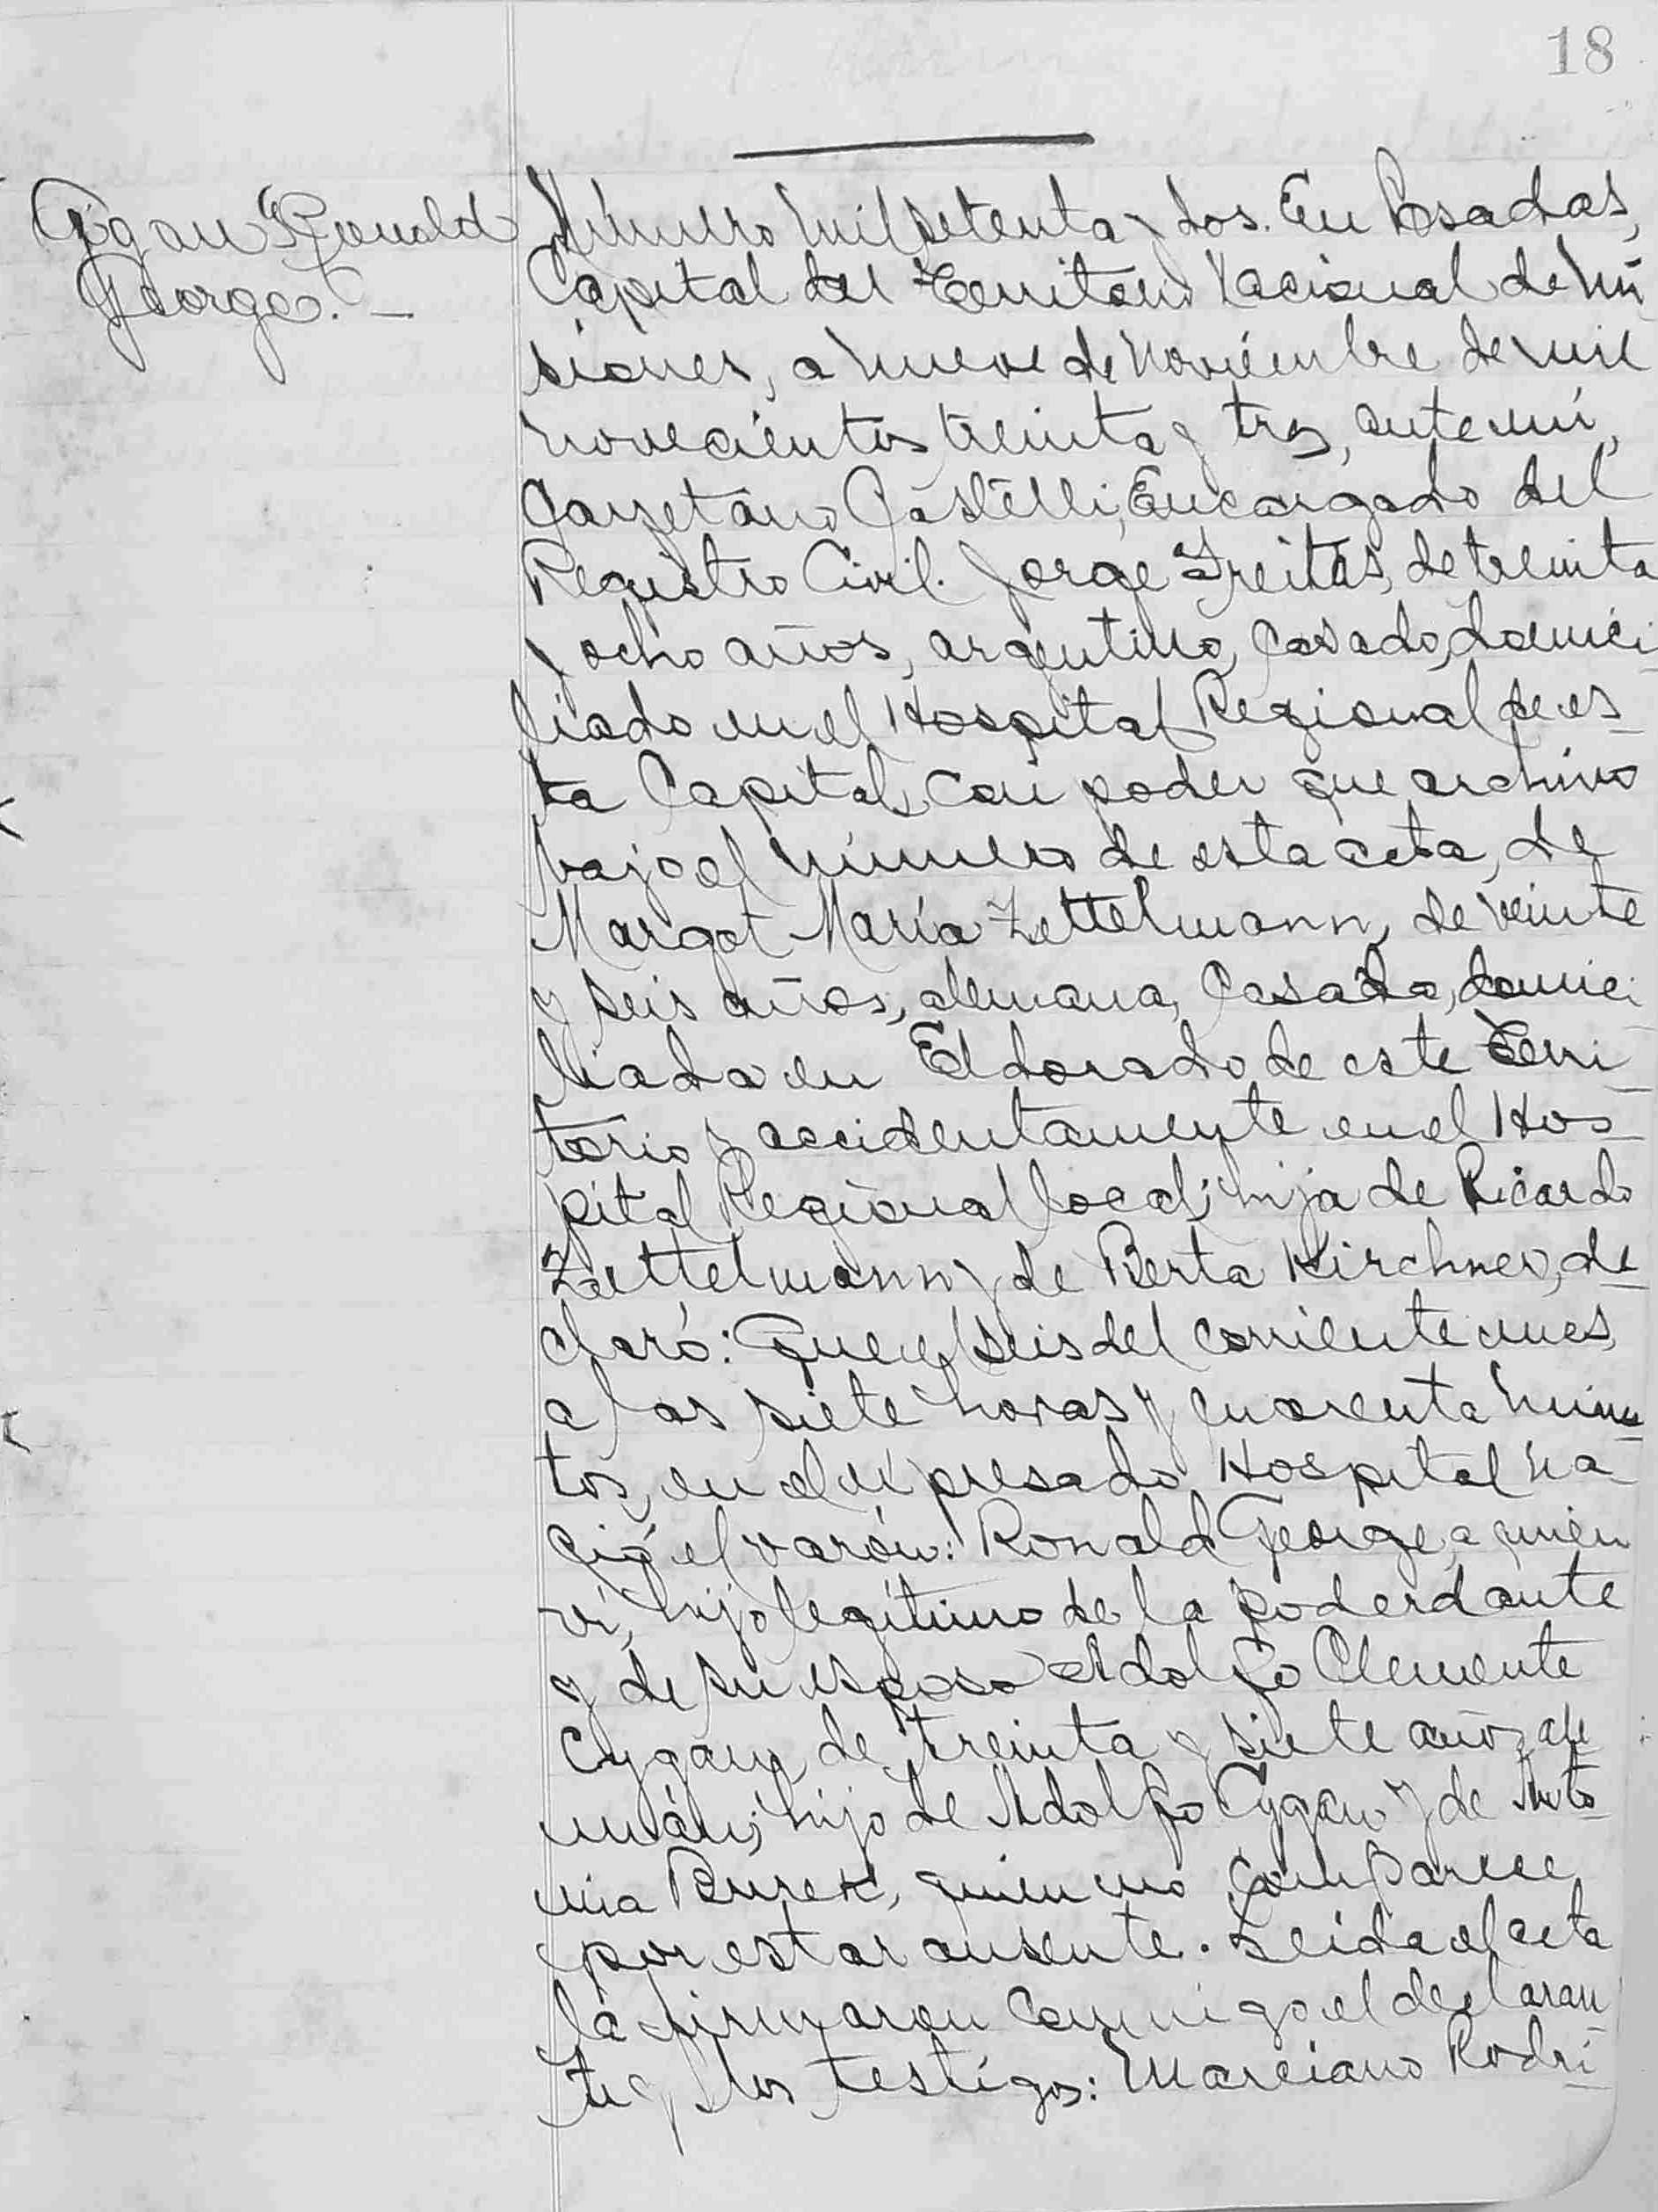 18
Cigan Ronald
George. -
Número mil setenta y dos. En Posadas,
Capital del Territorio Nacional de Mi
siones, a nueve de noviembre de mil
novecientos treinta y tres, ante mí,
Gayetano Castelli, Encargado del
Registro Civil. Jorge Freitas, de treinta
y ocho años, argentino, casado, domici
liado en el Hospital Regional de es-
ta Capital, con poder que archivo
bajo el número de esta acta, de
Margot María Zettelmann, de veinte
y seis años, alemana, casada, domici
liada en Eldorado de este Terri-
torio y accidentamente en el Hos-
pital Regional local; hija de Ricardo
Zettelmann y de Berta Kirchner, de-
claró: Que el seis del corriente mes,
a las siete horas y cuarenta minu-
tos, en el expresado Hospital na-
ció el varón: Ronald George, a quien
ví, hijo legítimo de la poderdante
y de su esposo Adolfo Clemente
Cygan, de treinta y siete años, ale
mán; hijo de Adolfo Cygan y de Anto-
nia Burek, quien no comparece
por estar ausente. Leida el acta
la firmaron conmigo el declaran
te y los testigos: Marciano Rodri-